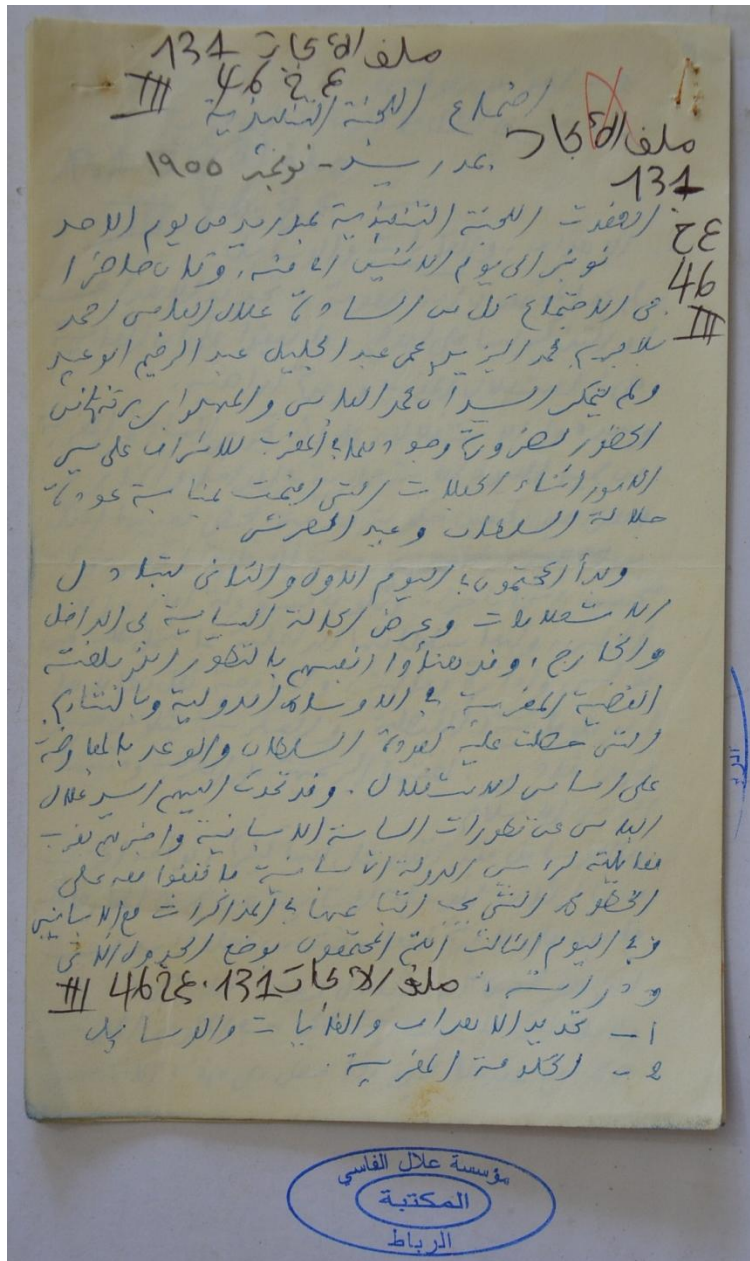 ملف الأبحاث 131
ع خ 46 III
اجتماع اللجنة التنفيذية
بمدريد - نونبر 1955
ملف الأبحاث
131
ع خ
46
III
انعقدت اللجنة التنفيذية بمدريد من يوم الاحد
نونبر الى يوم الاثنين منه، وكان حاضرا
في الاجتماع كل من السادة علال الفاسي احمد
بلافريج محمد اليزيدي عمر عبد الجليل عبد الرحيم بوعبيد
ولم يتمكن السيدان محمد الفاسي و من
الحضور لضرورة وجودهما بالمغرب للاشراف على سير
الامور اثناء الحفلات التي اقيمت بمناسبة عودة
جلالة السلطان وعيد العرش.
وبدأ المجتمعون اليوم الاول والثاني بتبادل
الاستعلامات وعرض الحالة السياسية في الداخل
والخارج، وقد هنأوا انفسهم بالتطور الذي بلغته
القضية المغربية في الاوساط الدولية وبالنتائج
التي حصلت عليه لعودة السلطان والوعد بالمفاوضة
على اساس الاستقلال. وقد تحدث اليهم السيد علال
الفاسي عن تطورات السياسة الاسبانية واخبرهم بقرب
مقابلته لرئيس الدولة الاسبانية فاتفقوا معه على
الخطوط التي يجب في المذاكرات مع الاسبانيين
وفي اليوم الثالث اهتم المجتمعون بوضع الجدول الآتي
ودراسته:
ملف الأبحاث 131. ع خ 46 III
1 - تحديد الاهداف والغايات والوسائل
2 - الحكومة المغربية.
مؤسسة علال الفاسي
المكتبة
الرباط